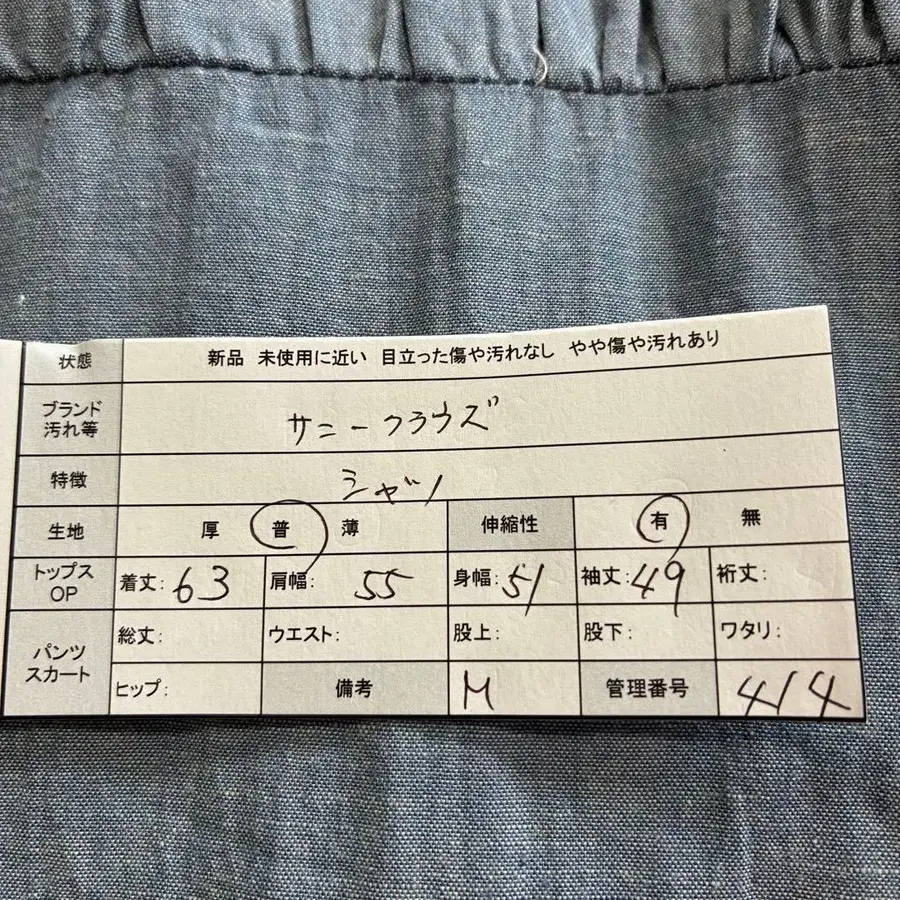 状態 新品 未使用に近い 目立った傷や汚れなし やや傷や汚れあり
ブランド
汚れ等 サニークラウズ
特徴 シャツ
生地 厚 普 薄 伸縮性 有 無
トップス
OP 着丈: 63 肩幅: 55 身幅: 51 袖丈: 49 裄丈:
パンツ
スカート 総丈: ウエスト: 股上: 股下: ワタリ:
ヒップ: 備考 M 管理番号 414